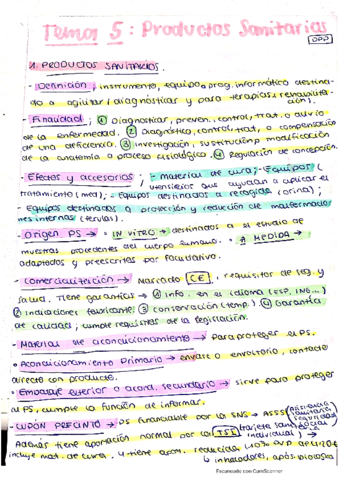 Tema 5: Productos Sanitarios
OPP
1. PRODUCTOS SANITARIOS.
- Definición; instrumento, equipo o prog. informático destina-
do a agilitar/diagnósticar y para terapias, rehabilita-
ción).
- Finalidad; ① Diagnosticar, preven. control, trat. o alivio
de la enfermedad. ② Diagnóstico, control, trat. o compensación
de una deficiencia. ③ investigación, sustitución o modificación
de la anatomía o proceso fisiológico. ④ Regulación de concepción.
- Efectos y accesorios; - material de cura; - Equipos (
utensilios que ayudan a aplicar el
tratamiento (med); - Equipos destinados a recogida (orina);
- Equipos destinados a protección y reducción de
internas (
- Origen PS → = IN VITRO → destinados a el estudio de
muestras procedentes del cuerpo humano. = A MEDIDA →
adaptados y preescritos por facultativo.
- Comercialización → Marcado CE, requisitos de seg. y
salud. Tiene garantías → ① info. en el idioma (ESP, ING...)
② indicaciones fabricante ③ conservación (temp.) ④ Garantía
de calidad; cumple requisitos de la legislación.
- Material de acondicionamiento → Para proteger el PS.
• Acondicionamiento Primario → envase o envoltorio, contacto
directo con producto.
- Embalaje exterior o acond. secundario → sirve para proteger
al PS, cumple la función de informar.
- CUPÓN PRECINTO → PS financiable por la SNS → ASSS (Asistencia
sanitaria
seguridad
social)
Además tiene aportación normal por la TSI (tarjeta sanitaria
individual) →
incluye mat. de cura, y tiene acon. reducida 10%
inhaladores, após
Escaneado con CamScanner